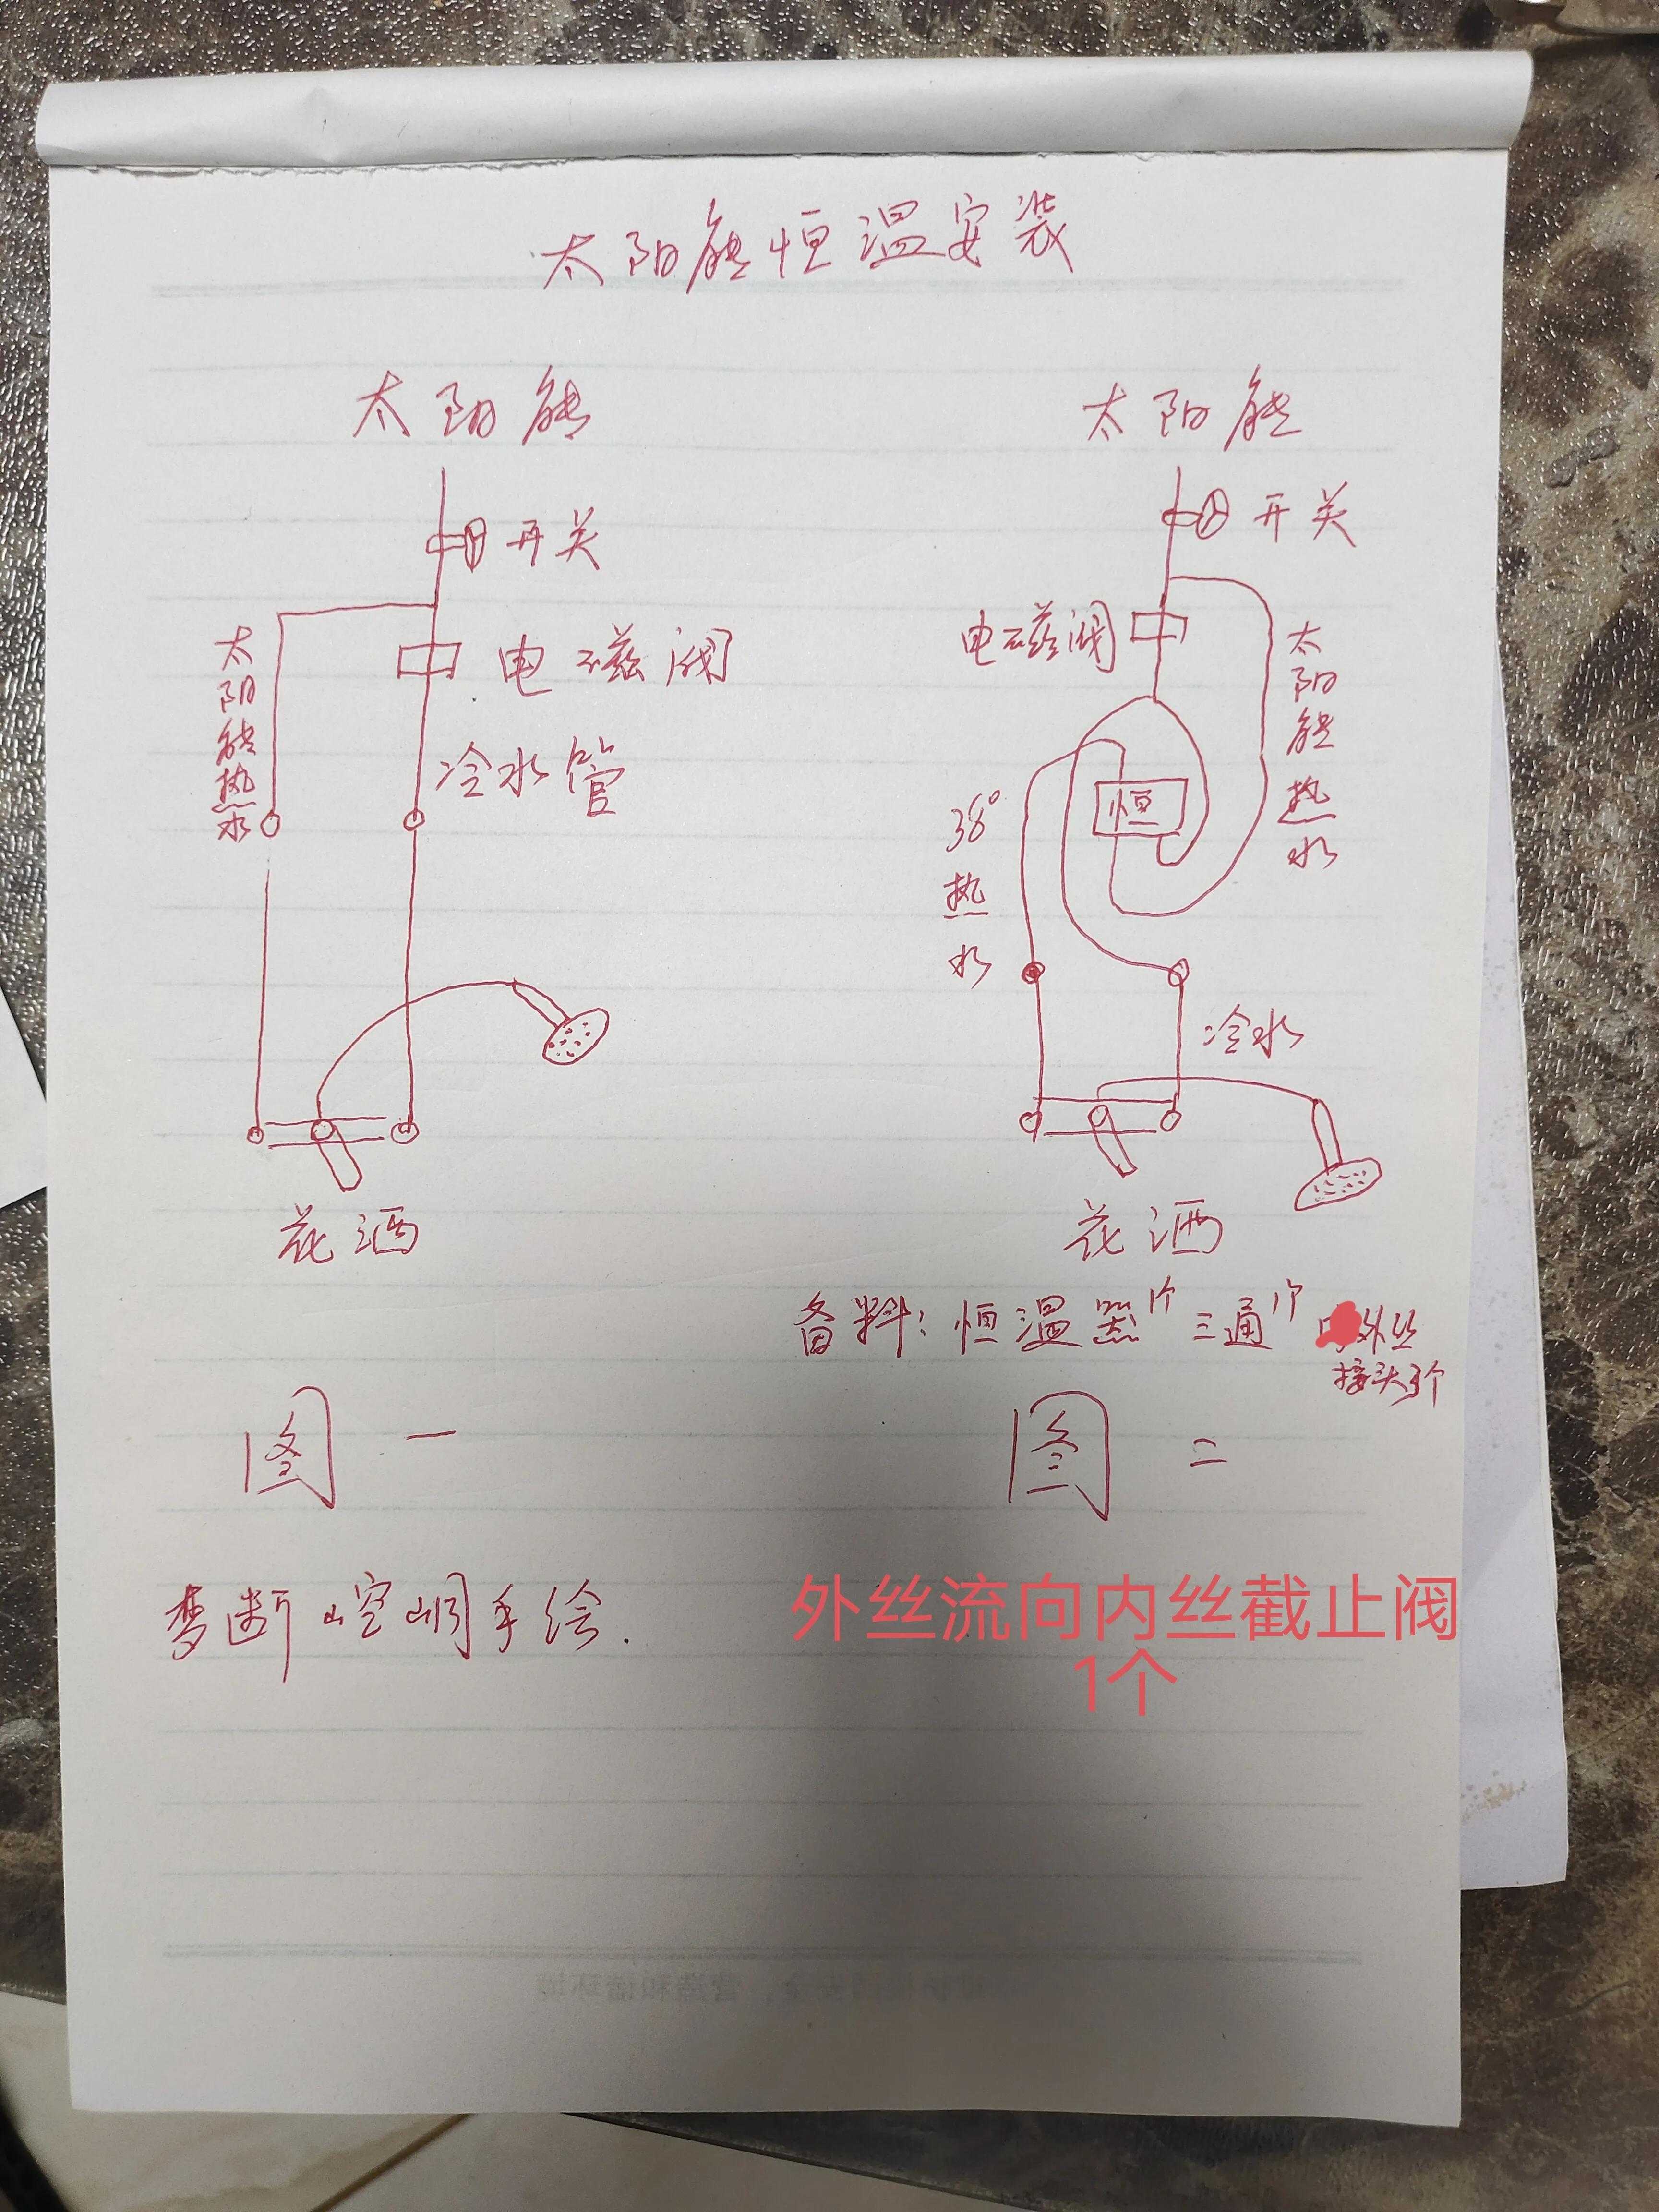 太阳能恒温安装
太阳能
开关
太阳能热水
电磁阀
冷水管
花洒
图一
太阳能
开关
电磁阀
太阳能热水
恒
38°热水
冷水
花洒
备料：恒温器1个三通1个 外丝
接头3个
图二
梦断崆峒手绘.
外丝流向内丝截止阀
1个